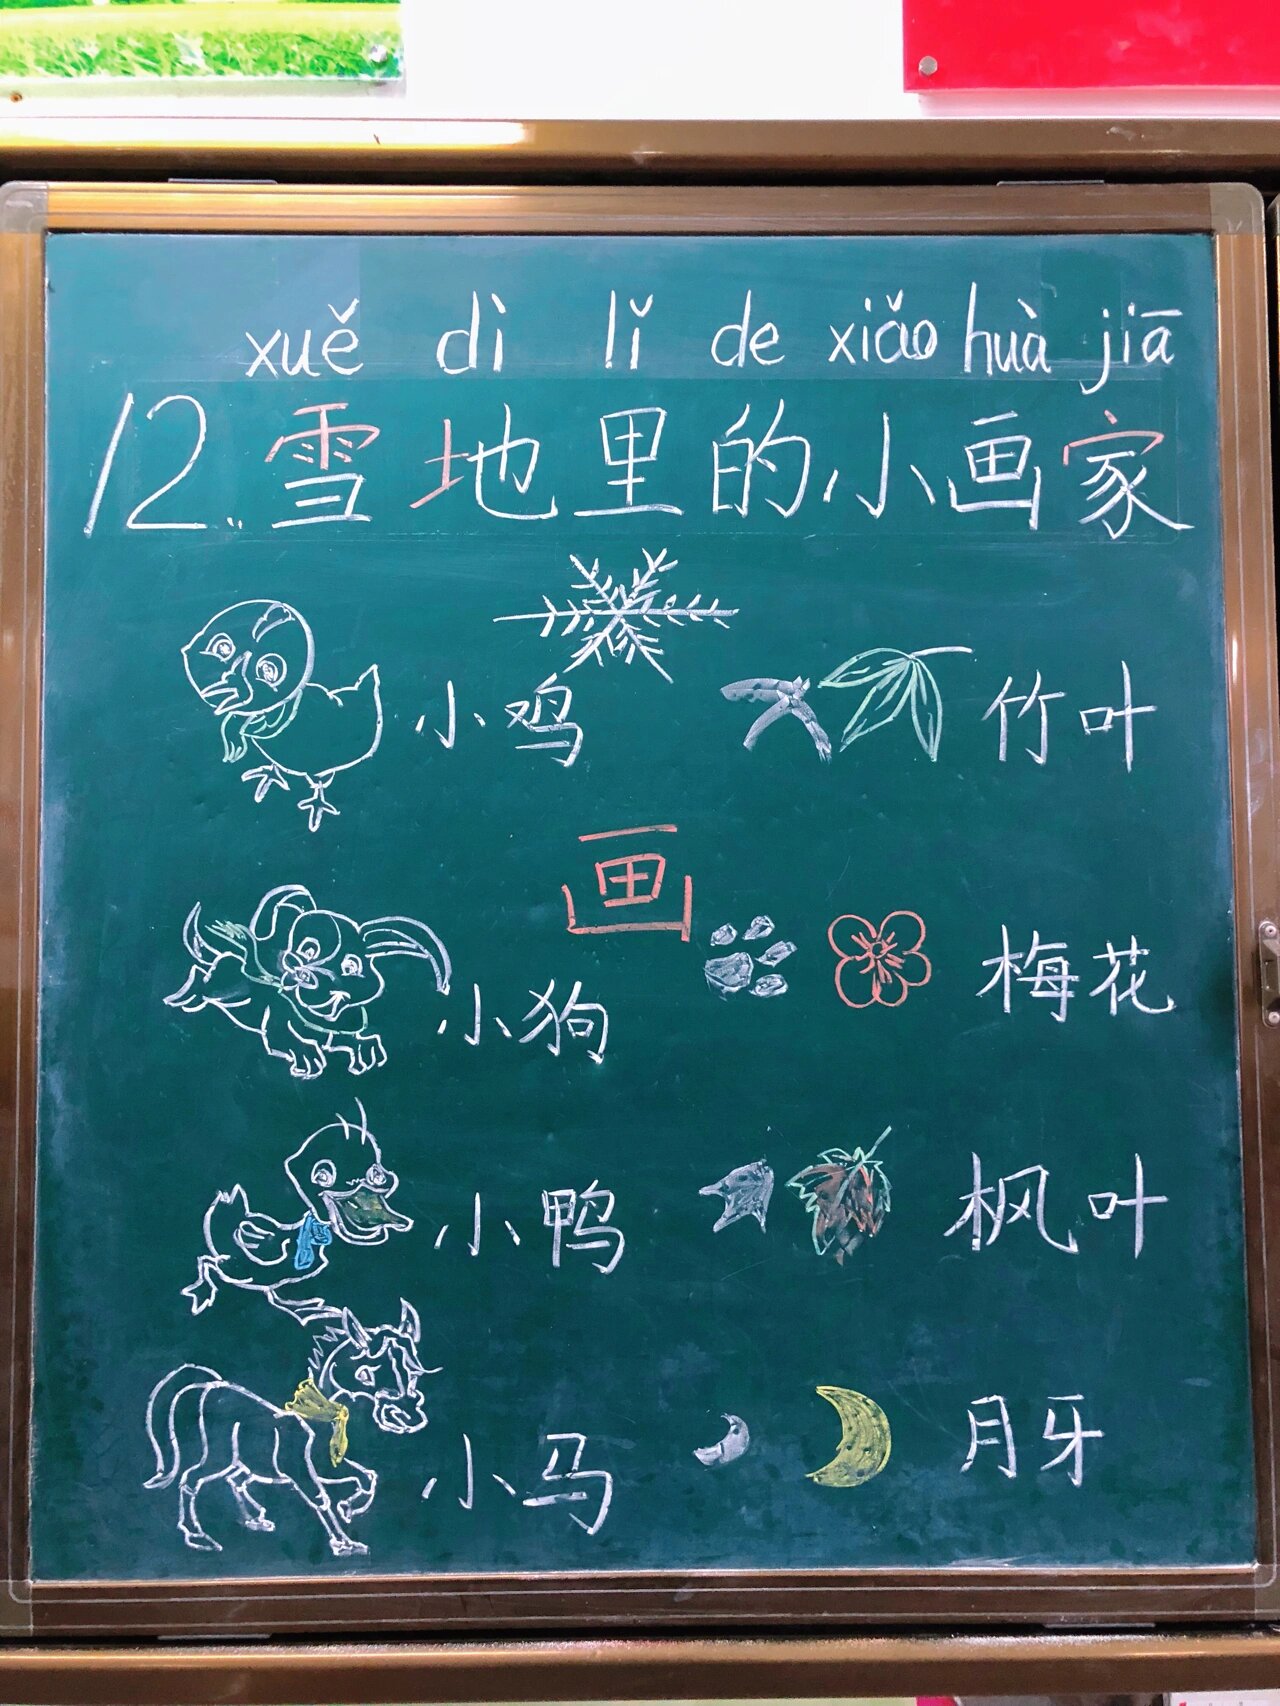 xuě dì lǐ de xiǎo huà jiā
12.雪地里的小画家
小鸡 竹叶
画
小狗 梅花
小鸭 枫叶
小马 月牙